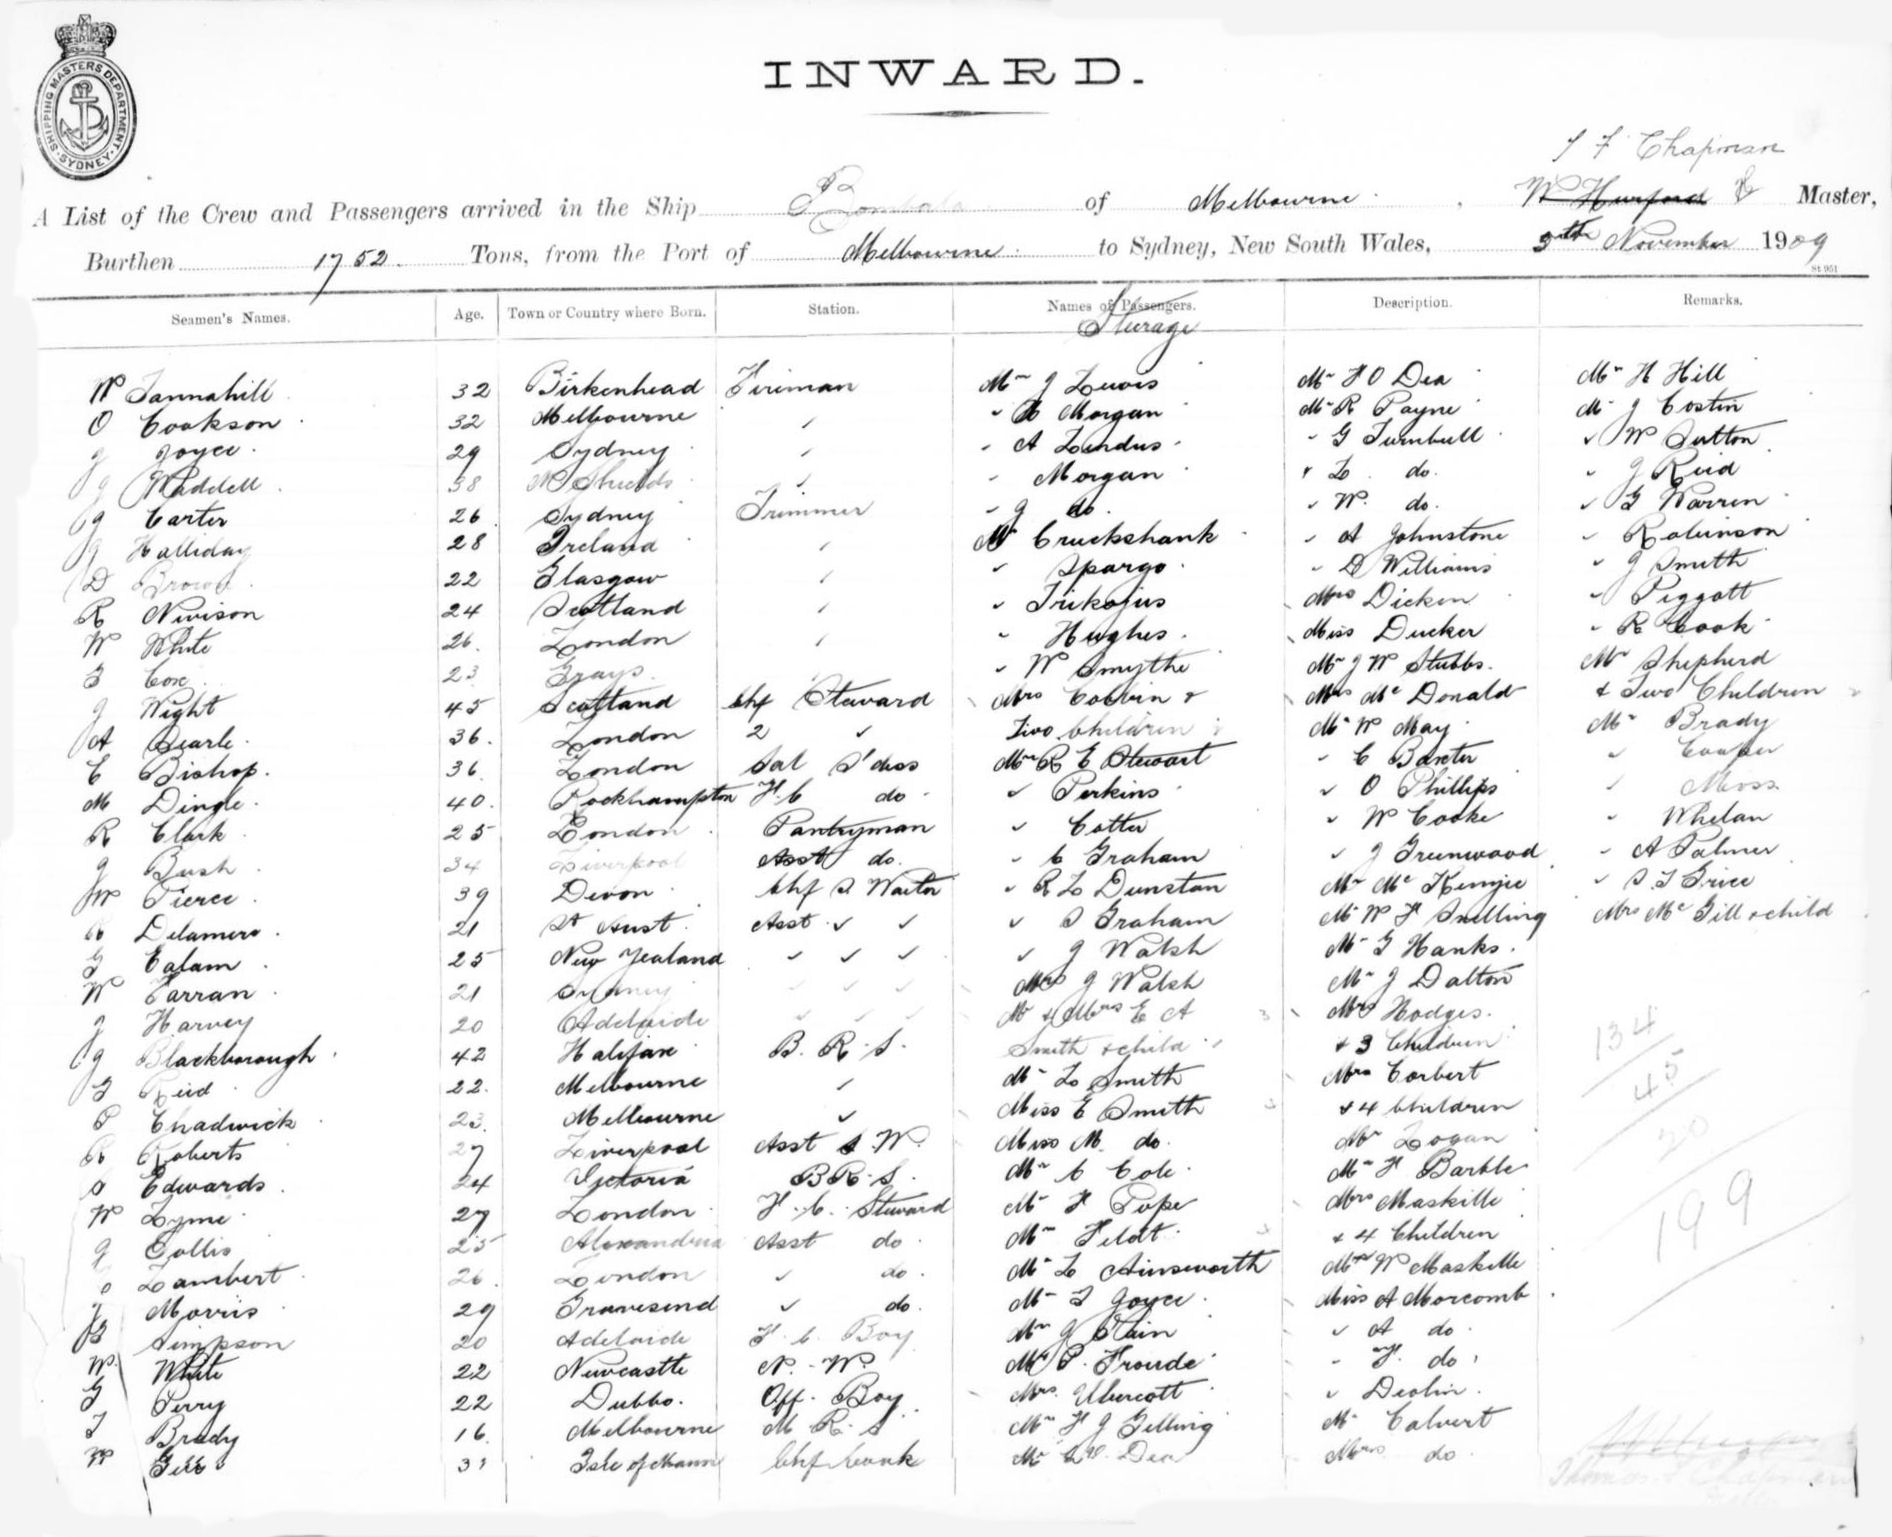 SHIPPING MASTERS DEPARTMENT · SYDNEY ·
INWARD.
T F Chapman
A List of the Crew and Passengers arrived in the Ship Bombala of Melbourne, W Hurford Master,
Burthen 1752 Tons, from the Port of Melbourne to Sydney, New South Wales, 9th November 1909
St 951
Seamen's Names. Age. Town or Country where Born. Station. Names of Passengers. Description. Remarks.
Steerage
W Tannahill 32 Birkenhead Fireman Mr J Lewis Mr F O Dea Mr H Hill
O Cookson 32 Melbourne " " Morgan Mr R Payne Mr J Costin
J Joyce 29 Sydney " " A Lindus " G Turnbull " W Sutton
J Waddell 38 N Shields " " Morgan " L do. " J Reid
J Carter 26 Sydney Trimmer " J do. " W. do. " G Warren
J Halliday 28 Ireland " Mr Cruckshank " A Johnstone " Robinson
D Brown 22 Glasgow " " Spargo " D Williams " J Smith
R Nivison 24 Scotland " " Trikojus Mrs Dicken " Piggott
W White 26 London " " Hughes Miss Ducker " R Cook
G Cox 23 Grays " " W Smythe Mr J W Stubbs Mrs Shepherd
J Wight 45 Scotland Chf Steward Mrs Corbin & Mrs Mc Donald & Two Children
A Searle 36 London 2 " Two Children Mr W May Mr Brady
C Bishop 36 London Sal S'dess Mr R E Stewart " C Baxter " Cooper
M Dingle 40 Rockhampton F. C do " Perkins " O Phillips " Moss
R Clark 25 London Pantryman " Cotter " W Cooke " Whelan
J Bush 34 Liverpool Asst do. " C Graham " J Greenwood " A Palmer
W Pierce 39 Devon Chf S Waiter " R L Dunstan Mr Mc Kenzie " S. T Grice
R Delamere 21 St Aust Asst " " " S Graham Mr W F Snelling Mrs Mc Gill & child
G Ealam 25 New Zealand " " " " J Walsh Mr G Hanks
W Farran 21 Sydney " " " Mrs J Walsh Mr J Dalton
J Harvey 20 Adelaide " " " Mr & Mrs E A Mrs Hodges
J Blackborough 42 Halifax B. R. S. Smith & child & 3 Children
G Reid 22 Melbourne " Mr L Smith Mrs Corbert
P Chadwick 23 Melbourne " Miss E Smith & 4 Children
R Roberts 27 Liverpool Asst S. W. Miss M. do. Mr Logan
S Edwards 24 Victoria B R. S. Mr C Cole Mr F Barble
W Lyme 27 London F. C. Steward Mr F Pope Mrs Maskille
J Collis 25 Alexandria Asst do Mr Feldt & 4 Children
S Lambert 26 London " do. Mr L Ainsworth Mr W Maskille
J Morris 29 Gravesend " do. Mr T Joyce Miss A Morcomb
B Simpson 20 Adelaide F. C. Boy Mr J Cain " A do.
W. White 22 Newcastle N. W. Mr P. Froude " F. do.
G Perry 22 Dubbo Off. Boy Mrs. Ubercott " Deolin
T Brady 16 Melbourne M R. S. Mr F J Gelling Mr Calvert
W Gill 31 Isle of Mann Chf Cook Mr Dea Mrs do
134
45
20
199
Thomas F Chapman